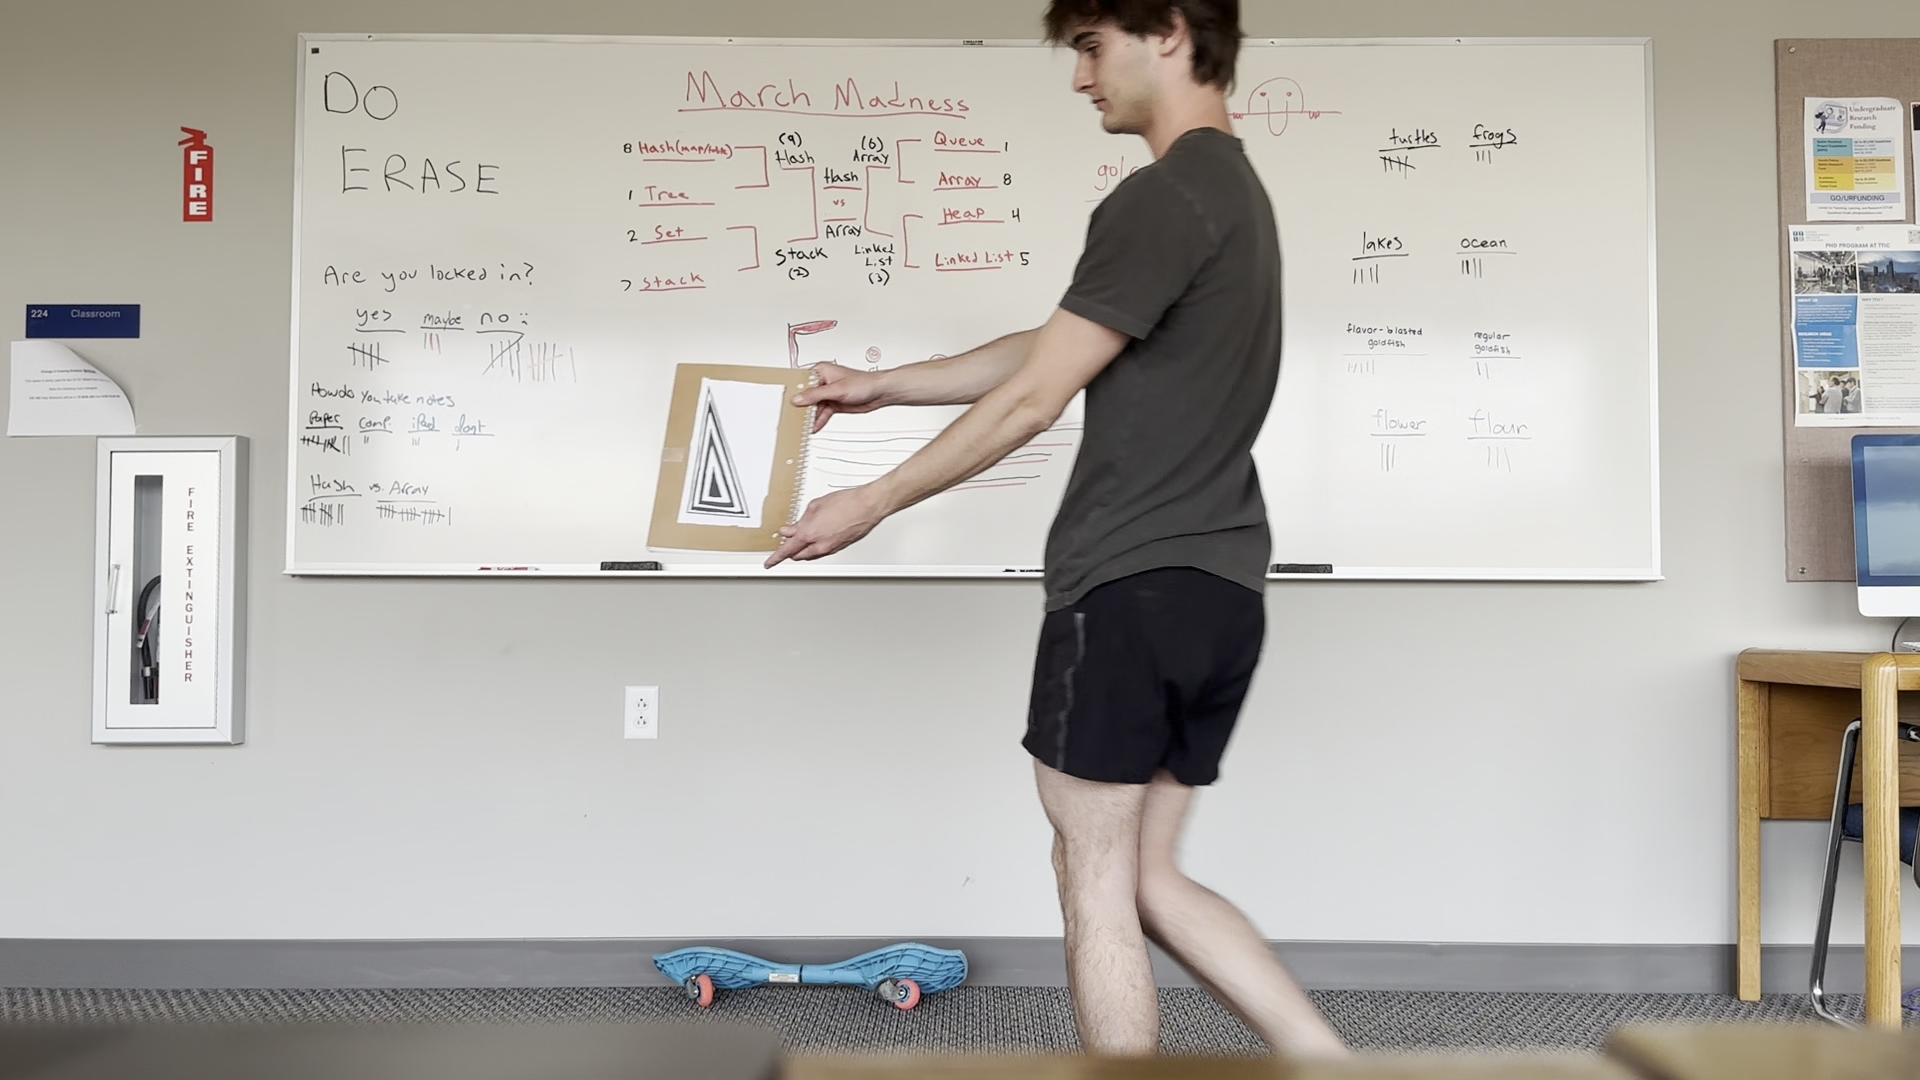 DO
ERASE
Are you locked in?
yes maybe no
How do you take notes
Paper comp. iPad dont
Hash vs. Array
March Madness
8 Hash(map/table)
1 Tree
2 Set
7 Stack
(9)
Hash
Stack
(2)
Hash
vs
Array
(6)
Array
Linked
List
(3)
Queue 1
Array 8
Heap 4
Linked List 5
turtles frogs
lakes ocean
flavor-blasted
goldfish
regular
goldfish
flower flour
FIRE
224 Classroom
FIRE EXTINGUISHER
Undergraduate
Research
Funding
GO/URFUNDING
PHD PROGRAM AT TTIC